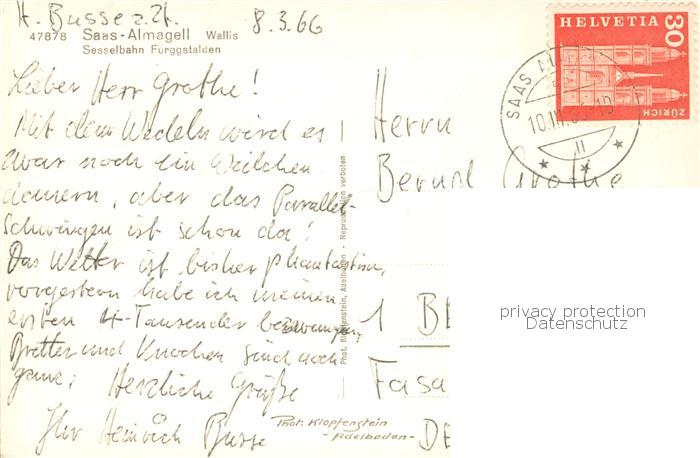 H. Busse z. Zt.
8.3.66
47878 Saas-Almagell Wallis
Sesselbahn Furggstalden
Lieber Herr Grothe!
Mit dem Wedeln wird es
zwar noch ein Weilchen
dauern, aber das Parallel-
Schwingen ist schon da!
Das Wetter ist bisher phantastisch,
vorgestern habe ich meinen
ersten 4-Tausender bezwungen,
Bretter und Knochen sind noch
ganz; Herzliche Grüße
Ihr Heinrich Busse
Phot. Klopfenstein, Adelboden - Reproduktion verboten
Phot. Klopfenstein
- Adelboden -
HELVETIA
30
ZÜRICH
SAAS AL
10.III.
Herrn
Bernd Grothe
1 BE
Fasa
DE
privacy protection
Datenschutz